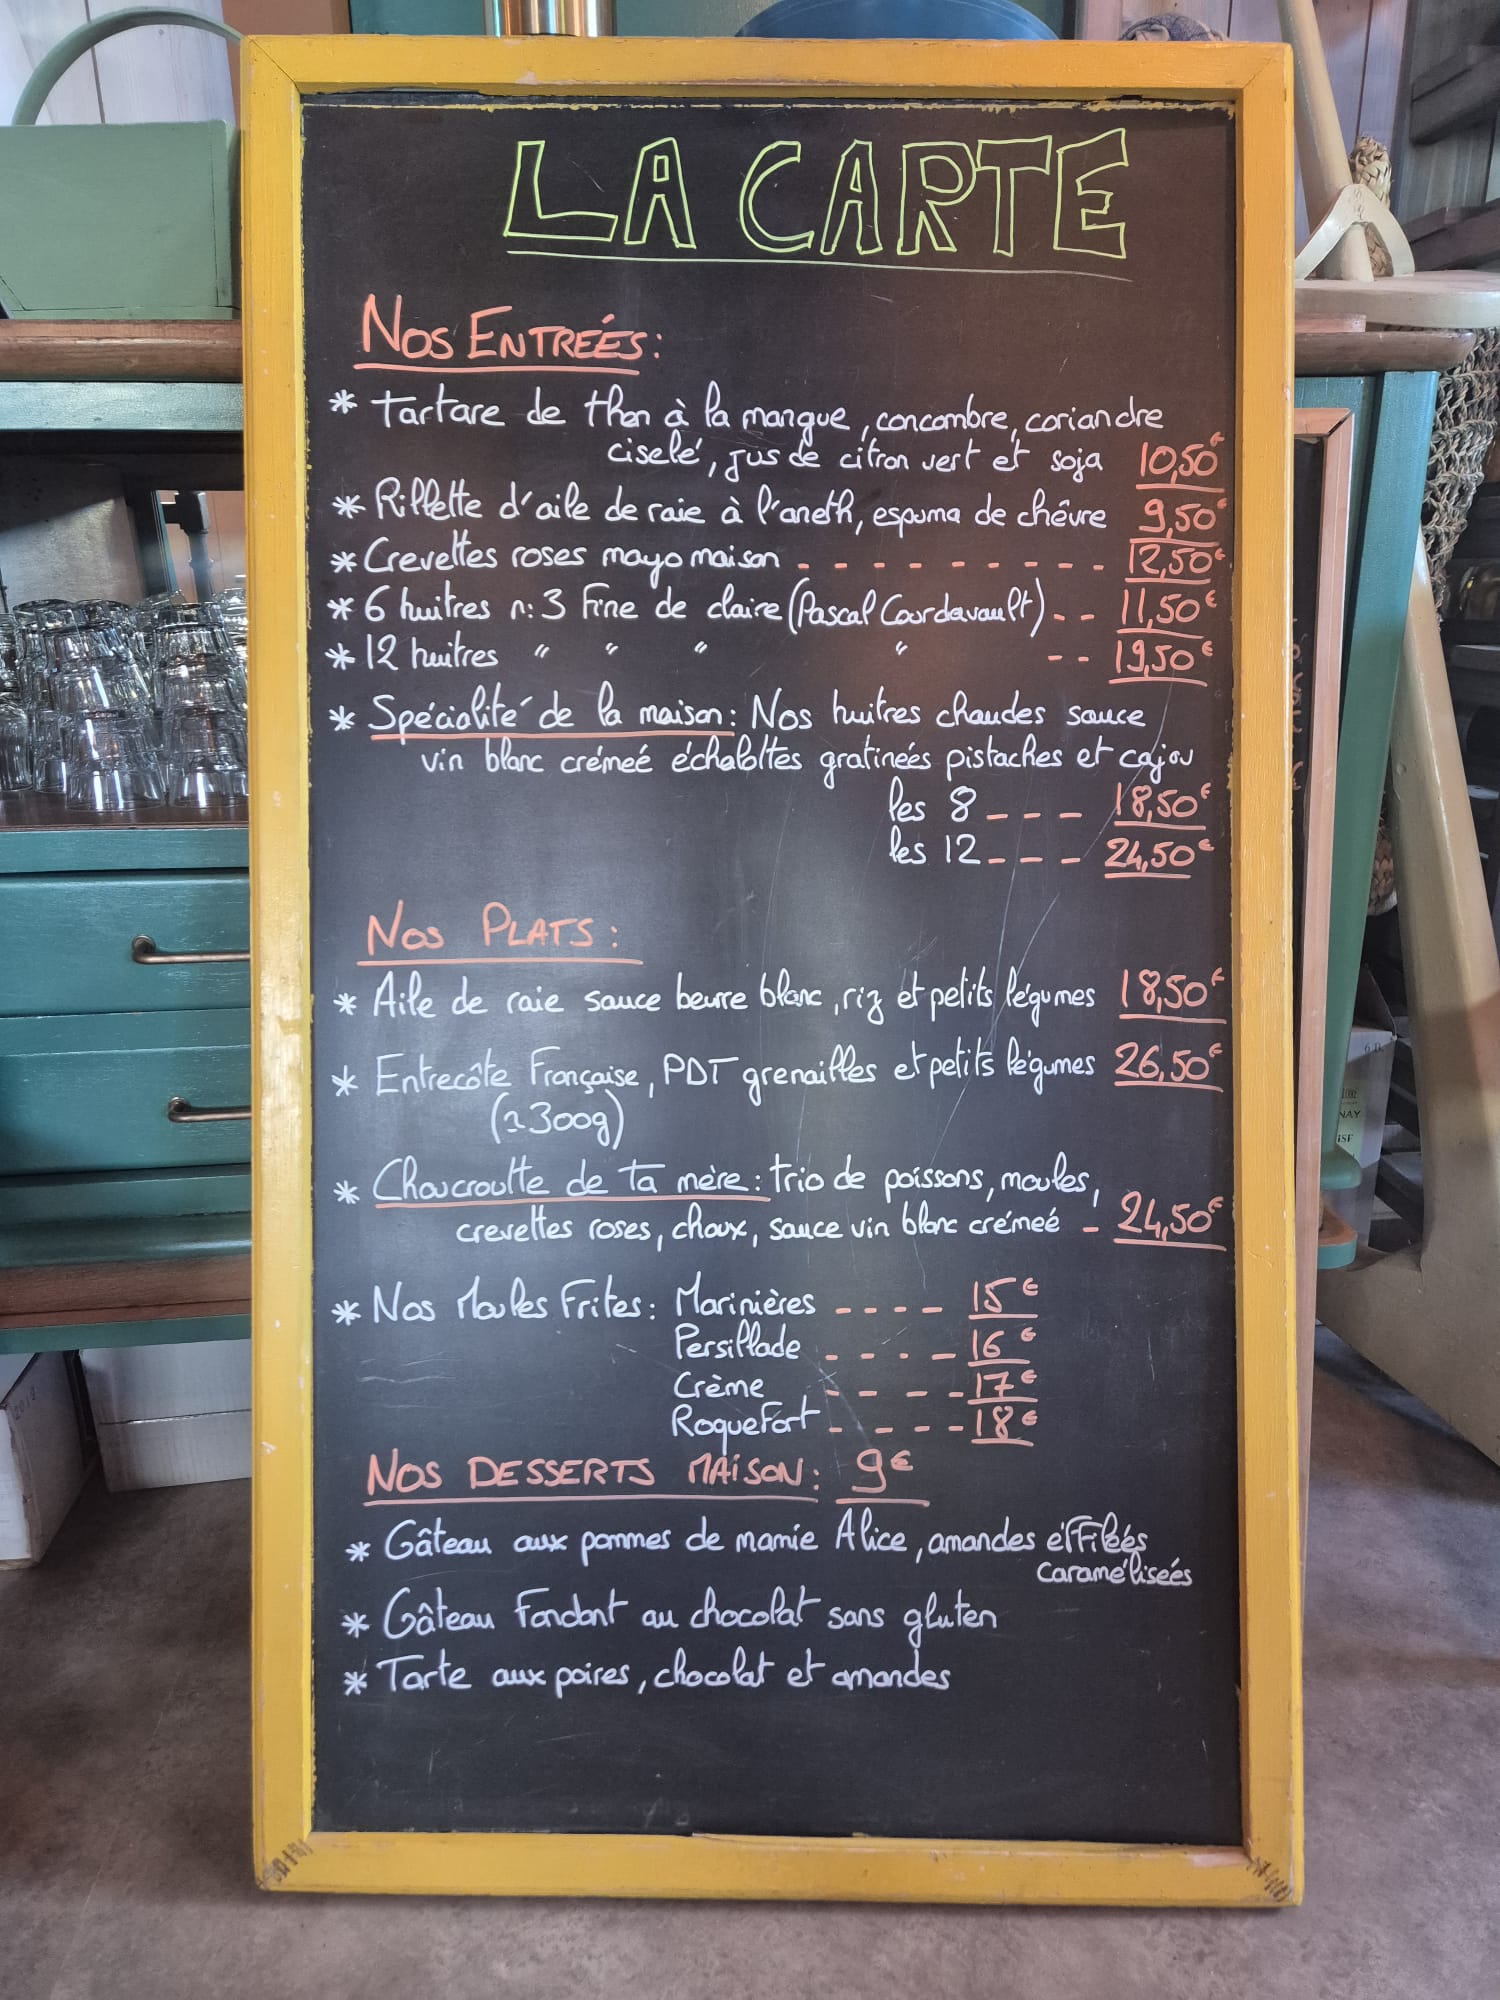 LA CARTE
NOS ENTREÉS:
* Tartare de thon à la mangue, concombre, coriandre
ciselé, jus de citron vert et soja 10,50€
* Rillette d'aile de raie à l'aneth, espuma de chêvre 9,50€
* Crevettes roses mayo maison - - - - - - - - - - 12,50€
* 6 huitres n:3 Fine de claire (Pascal Courdavault) - - 11,50€
* 12 huitres " " " " - - 19,50€
* Spécialité de la maison: Nos huitres chaudes sauce
vin blanc crémeé échalottes gratineés pistaches et cajou
les 8 - - - 18,50€
les 12 - - - 24,50€
NOS PLATS:
* Aile de raie sauce beurre blanc, riz et petits légumes 18,50€
* Entrecôte Française, PDT grenailles et petits légumes 26,50€
(≈300g)
* Choucroutte de ta mère: trio de poissons, moules,
crevettes roses, choux, sauce vin blanc crémeé - 24,50€
* Nos Moules Frites: Marinières - - - - 15€
Persillade - - - - - 16€
Crème - - - - - 17€
Roquefort - - - - - 18€
NOS DESSERTS MAISON: 9€
* Gâteau aux pommes de mamie Alice, amandes effileés
carameliseés
* Gâteau fondant au chocolat sans gluten
* Tarte aux poires, chocolat et amandes